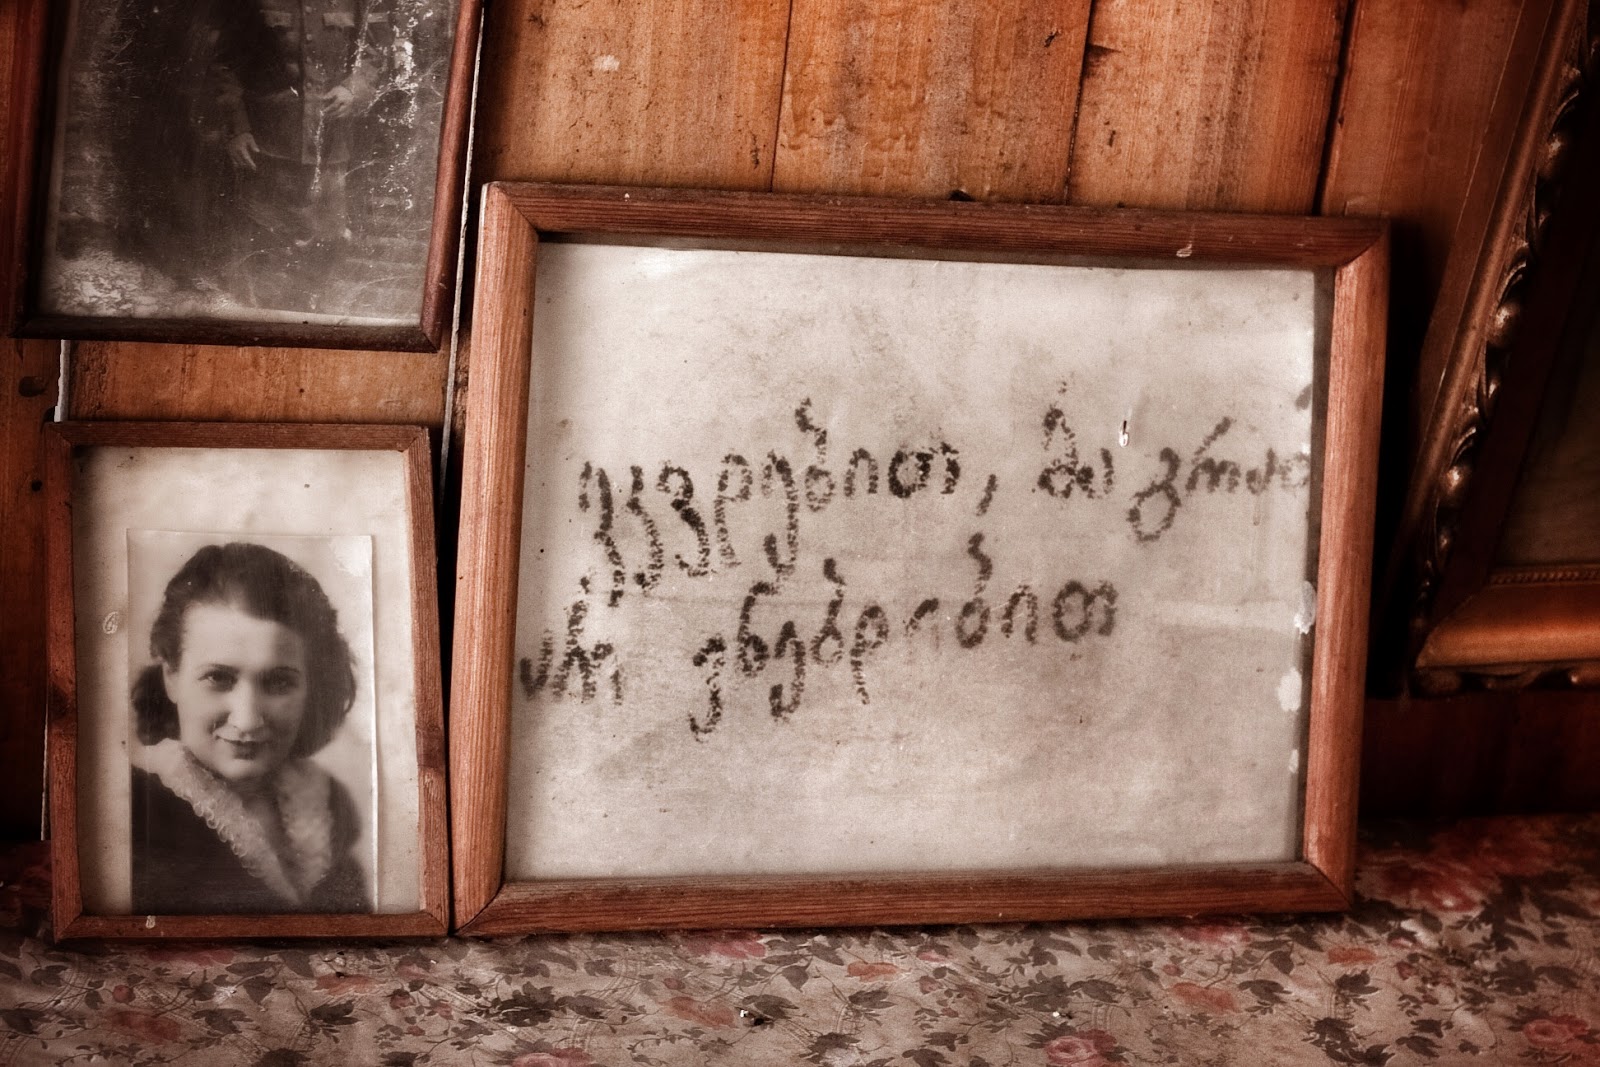 ვკვდებით, მაგრამ
არ ვნებდებით